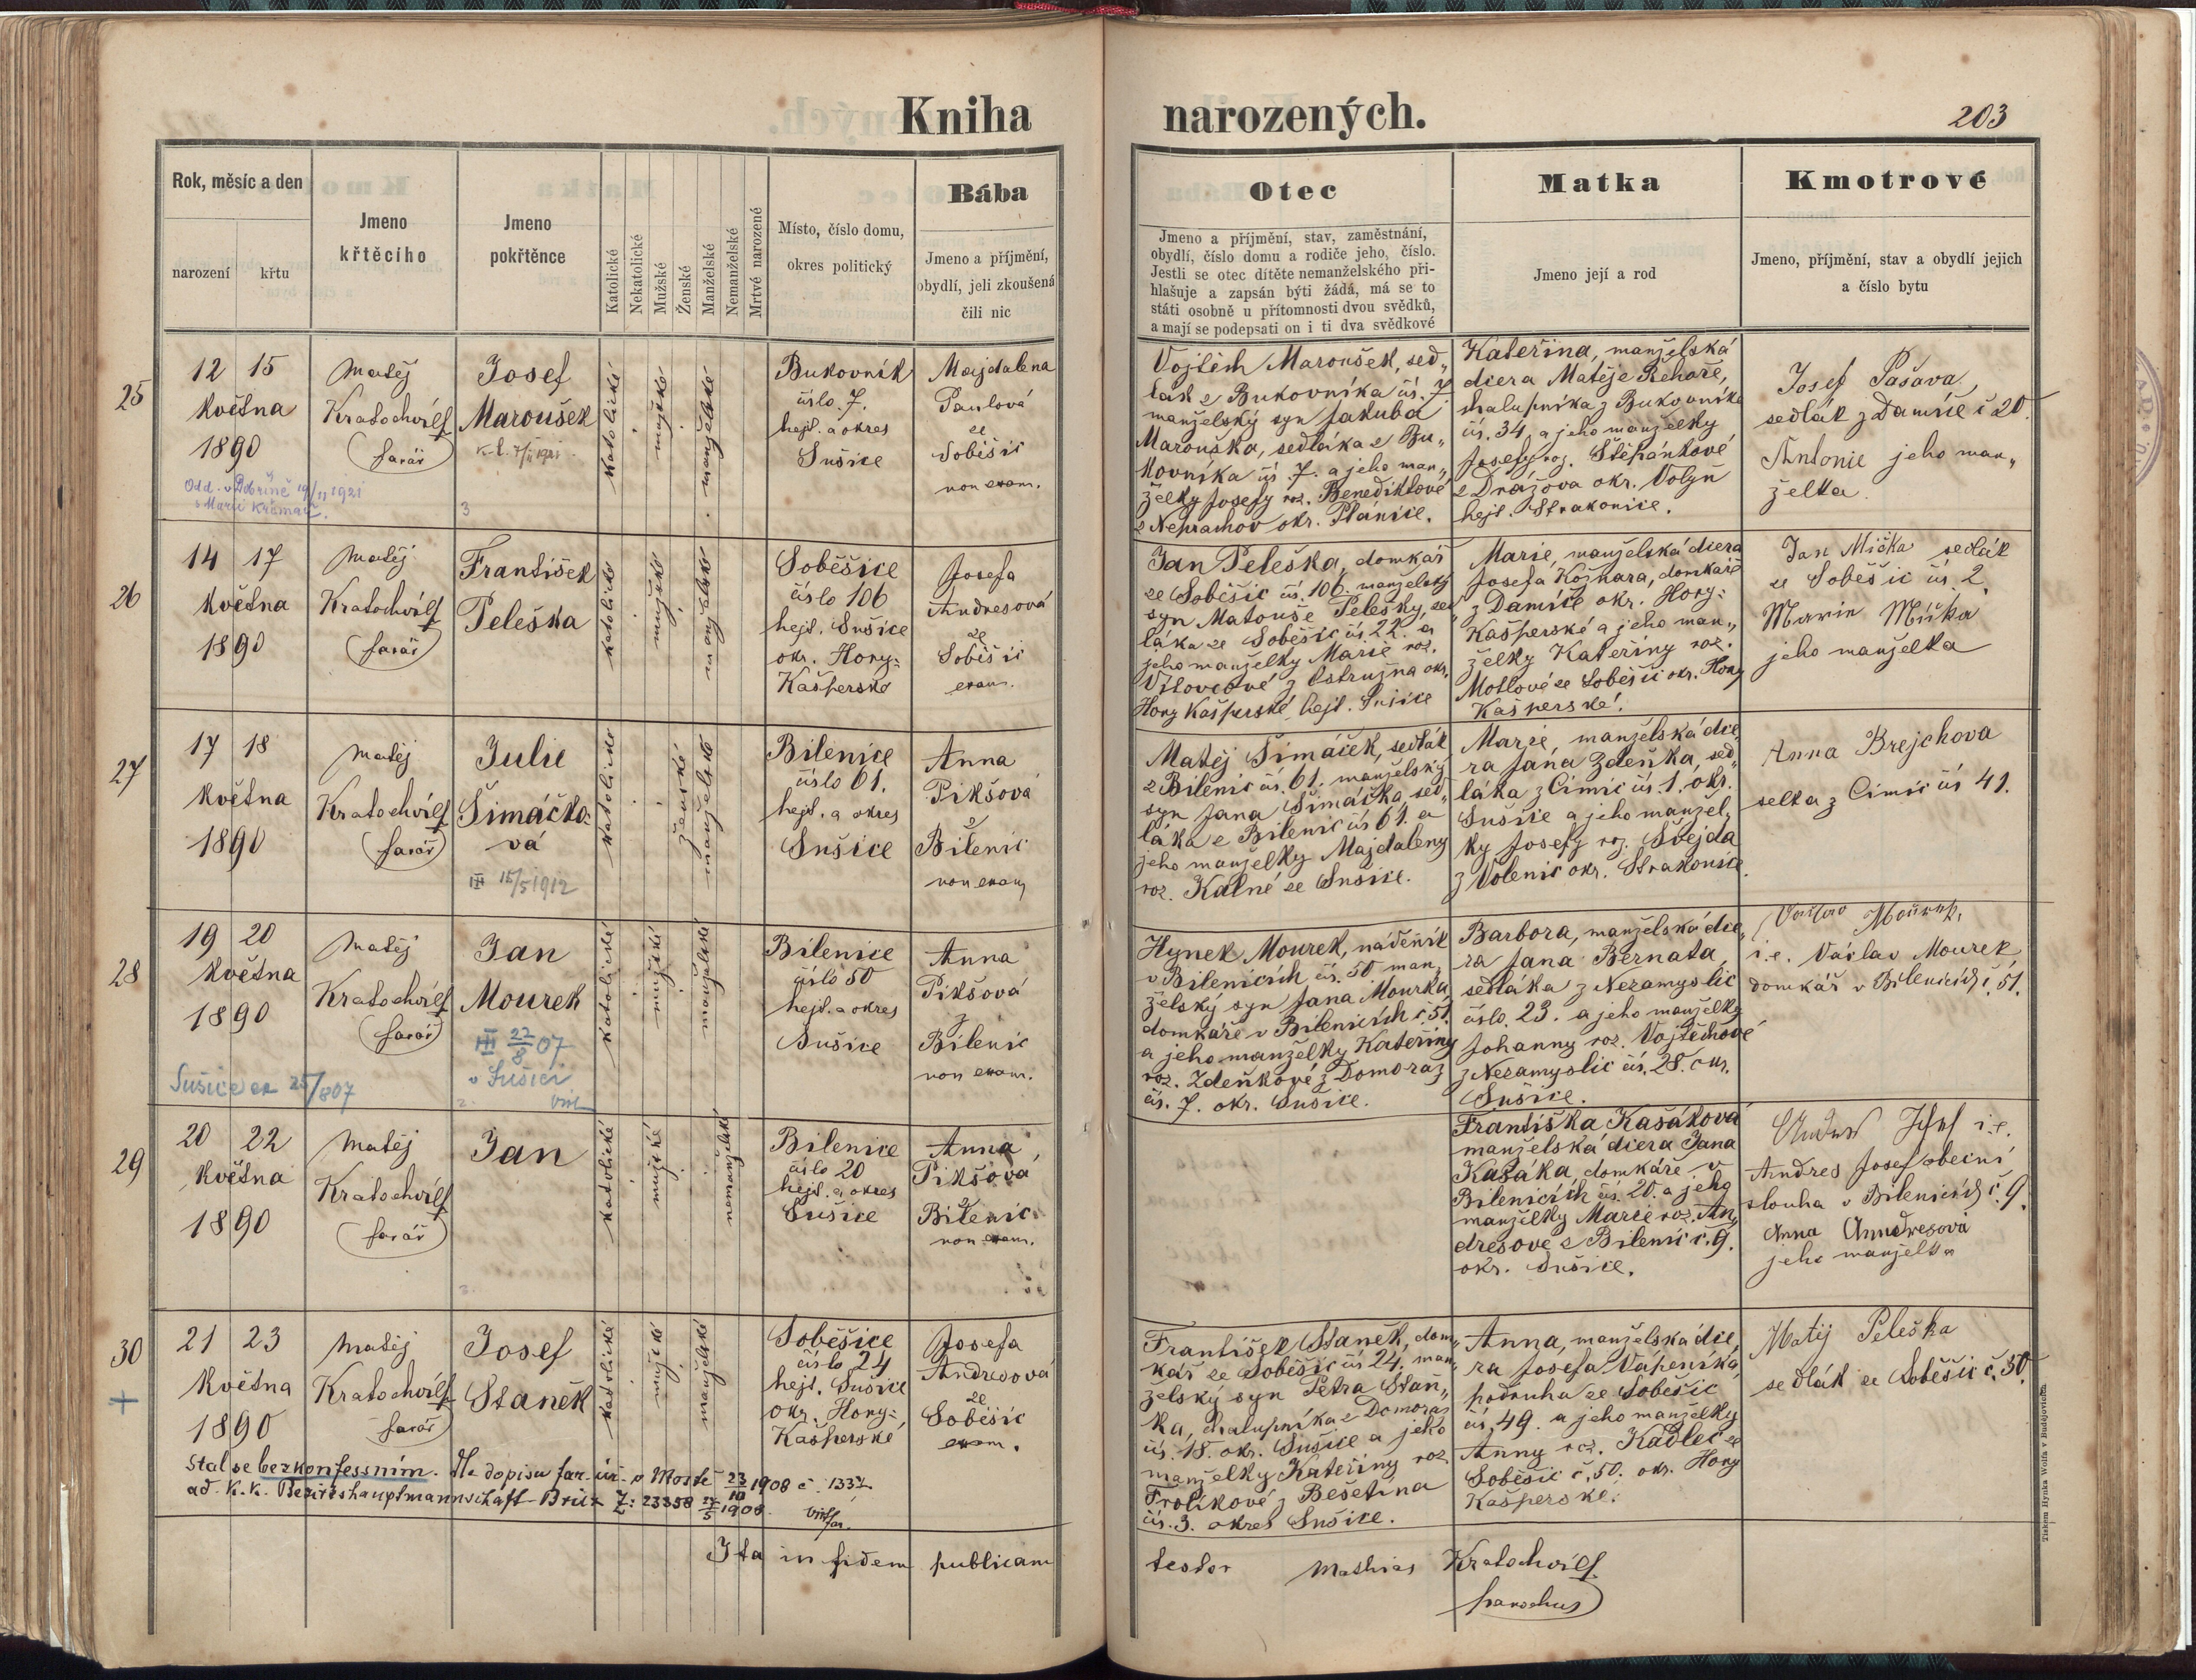 Kniha narozených.
203
Rok, měsíc a den
narození
křtu
Jmeno
křtěcího
Jmeno
pokřtěnce
Katolické
Nekatolické
Mužské
Ženské
Manželské
Nemanželské
Mrtvě narozené
Místo, číslo domu,
okres politický
Bába
Jmeno a příjmění,
obydlí, jeli zkoušená
čili nic
Otec
Jmeno a příjmění, stav, zaměstnání,
obydlí, číslo domu a rodiče jeho, číslo.
Jestli se otec dítěte nemanželského při-
hlašuje a zapsán býti žádá, má se to
státi osobně u přítomnosti dvou svědků,
a mají se podepsati on i ti dva svědkové
Matka
Jmeno její a rod
Kmotrové
Jmeno, příjmění, stav a obydlí jejich
a číslo bytu
25
12 15
května
1890
Odd. v Dobršně 19/11 1921
s Marií Krámař.
Matěj
Kratochvíll
farář
Josef
Maroušek
3
katolické
mužské
manželské
Bukovník
číslo 7.
hejt. a okres
Sušice
Majdalena
Paulová
ze
Soběšic
non exam.
Vojtěch Maroušek, sed„
lák z Bukovníka čís. 7
manželský syn Jakuba
Marouška, sedláka z Bu„
kovníka čís. 7. a jeho man„
želky Josefy roz. Benediktové
z Neprachov okr. Plánice.
Kateřina, manželská
dcera Matěje Řehoře,
chalupníka z Bukovníka
čís. 34. a jeho manželky
Josefy roz. Štěpánkové
z Drážova okr. Volyň
hejt. Strakonice.
Josef Pašava,
sedlák z Damíče č 20.
Antonie jeho man„
želka.
26
14 17
května
1890
Matěj
Kratochvíll
farář
František
Peleška
katolické
mužské
manželské
Soběšice
číslo 106
hejt. Sušice
okr. Hory-
Kašperské
Josefa
Andresová
ze
Soběšic
exam.
Jan Peleška, domkář
ze Soběšic čís. 106. manželský
syn Matouše Pelešky, sed„
láka ze Soběšic čís. 22. a
jeho manželky Marie roz.
Vítovcové z Ostružna okr.
Hory Kašperské, hejt. Sušice
Marie, manželská dcera
Josefa Kožnara, domkáře
z Damíče okr. Hory-
Kašperské a jeho man„
želky Kateřiny roz.
Motlové ze Soběšic okr. Hory
Kašperské.
Jan Mička sedlák
ze Soběšic čís 2.
Marie Mička
jeho manželka
27
17 18
května
1890
Matěj
Kratochvíll
farář
Julie
Šimáčko-
vá
III 15/5 1912
katolické
ženské
manželské
Bilenice
číslo 61.
hejt. a okres
Sušice
Anna
Pikšová
z
Bilenic
non exam.
Matěj Šimáček, sedlák
z Bilenic čís. 61. manželský
syn Jana Šimáčka sed„
láka z Bilenic čís 61. a
jeho manželky Majdaleny
roz. Kalné ze Sušice.
Marie, manželská dce„
ra Jana Zdeňka, sed„
láka z Čimic čís. 1. okr.
Sušice a jeho manžel„
ky Josefy roz. Švejda
z Volenic okr. Strakonice.
Anna Brejchova
selka z Čimic čís 41.
28
19 20
května
1890
Sušice 25/8 07
Matěj
Kratochvíll
farář
Jan
Mourek
III 22/8 07
v Sušici
katolické
mužské
manželské
Bilenice
číslo 50
hejt. a okres
Sušice
Anna
Pikšová
z
Bilenic
non exam.
Hynek Mourek, nádeník
v Bilenicích čís. 50 man„
želský syn Jana Mourka,
domkáře v Bilenicích č. 51.
a jeho manželky Kateřiny
roz. Zdeňkové z Domoraz
čís. 7. okr. Sušice.
Barbora, manželská dce„
ra Jana Bernata,
sedláka z Nezamyslic
číslo. 23. a jeho manželky
Johanny roz. Vojtěchové
z Nezamyslic čís. 28. okr.
Sušice.
i.e. Václav Mourek
domkář v Bilenicích č. 51.
29
20 22
května
1890
Matěj
Kratochvíll
farář
Jan
katolické
mužské
nemanželské
Bilenice
číslo 20
hejt. a okres
Sušice
Anna
Pikšová
z
Bilenic
non exam.
Františka Kasáková
manželská dcera Jana
Kasáka, domkáře v
Bilenicích čís. 20. a jeho
manželky Marie roz. An„
dresove z Bilenic č. 9.
okr. Sušice.
Andres Josef i.e.
Andres Josef obecní
slouha v Bilenicích č. 9.
Anna Anndresová
jeho manželka
30
+
21 23
května
1890
Matěj
Kratochvíll
farář
Josef
Staněk
katolické
mužské
manželské
Soběšice
číslo 24
hejt. Sušice
okr. Hory-
Kašperské
Josefa
Andresová
ze
Soběšic
exam.
František Staněk, dom„
kář ze Soběšic čís 24. man„
želský syn Petra Staň„
ka, chalupníka z Domoraz
čís. 18. okr. Sušice a jeho
manželky Kateřiny roz.
Frolíkové z Bešetína
čís. 3. okres Sušice.
Anna, manželská dce„
ra Josefa Vápeníka,
podruha ze Soběšic
čís. 49. a jeho manželky
Anny roz. Kadlec ze
Soběšic č. 50. okr. Hory
Kašperske.
Matěj Peleška
sedlák ze Soběšic č. 50.
Stal se bezkonfessním. Dle dopisu far. úř. v Mostě 23/10 1908 č. 1337
ad. K.k. Bezirkshauptmannschaft Brüx Z: 23358 27/5 1908.
Ita in fidem publicam
testor Mathias Kratochvíll
parochus
Tiskem Hynka Wolfa v Budějovicích